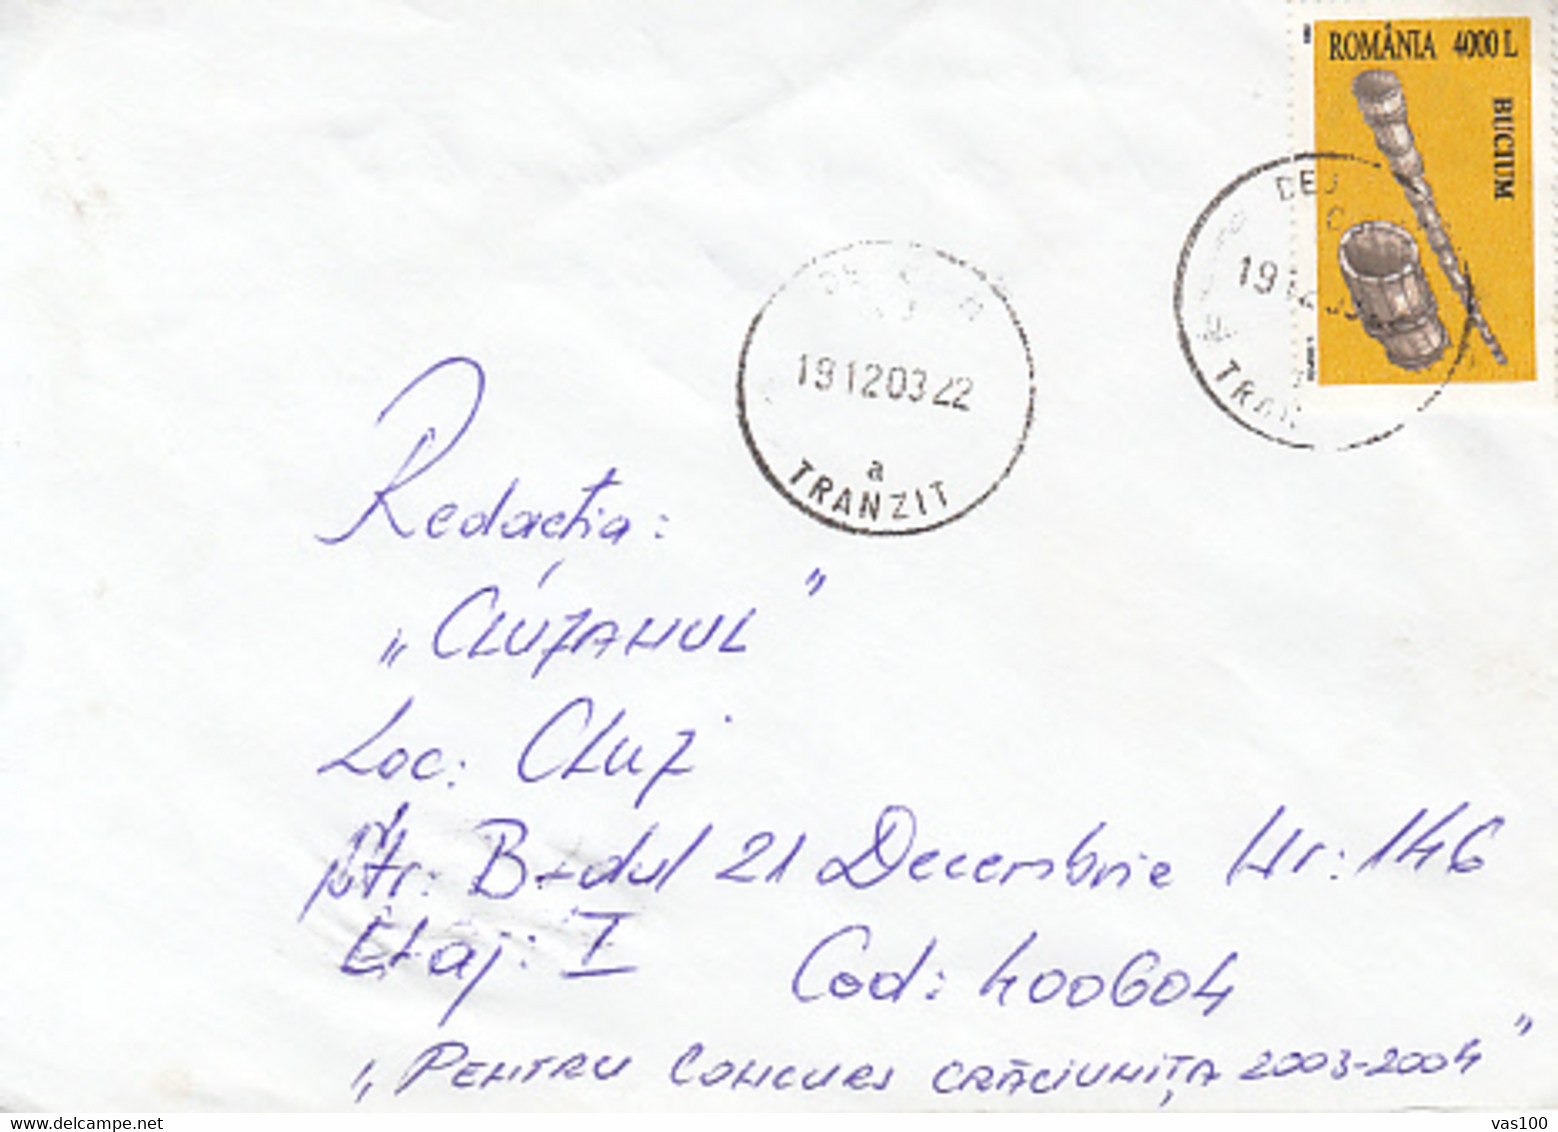 ROMÂNIA 4000 L
BUCIUM
DEJ
191203
TRAN
19120322
a
TRANZIT
Redacția:
„CLUJANUL”
Loc: CLUJ
Str: B-dul 21 Decembrie Nr: 146
Etaj: I Cod: 400604
„PENTRU CONCURS CRĂCIUNIȚA 2003-2004”
vas100